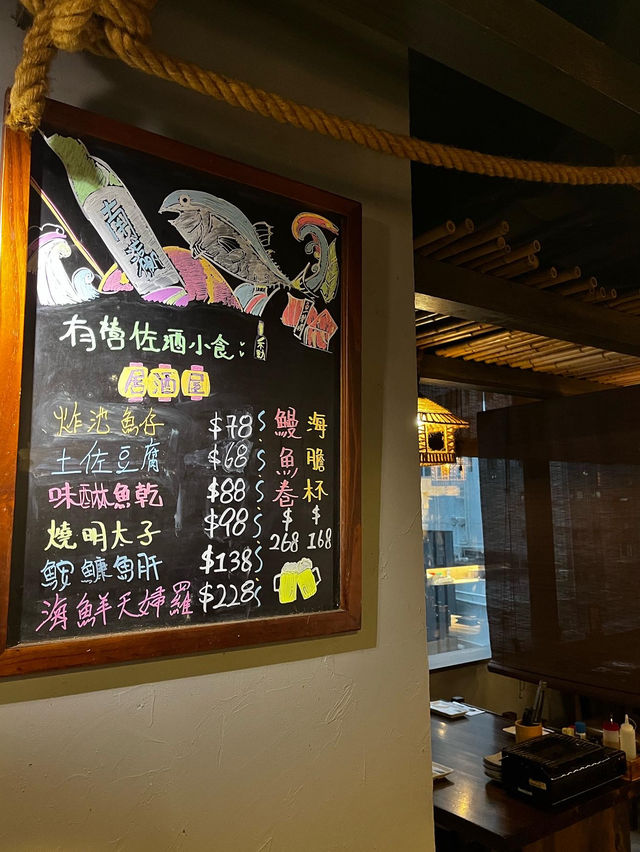 有樽佐酒小食：
居酒屋
炸池魚仔 $78
土佐豆腐 $68
味醂魚乾 $88
燒明太子 $98
鮟鱇魚肝 $138
海鮮天婦羅 $228
鰻魚卷 $268
海膽杯 $168